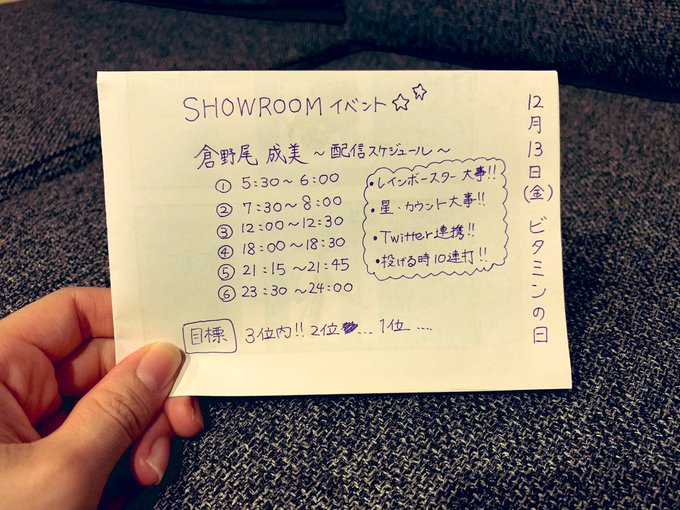 SHOWROOM イベント☆☆
倉野尾 成美 ~ 配信スケジュール ~
① 5:30~6:00
② 7:30~8:00
③ 12:00~12:30
④ 18:00~18:30
⑤ 21:15~21:45
⑥ 23:30~24:00
・レインボースター大事!!
・星・カウント大事!!
・Twitter連携!!
・投げる時10連打!!
目標 3位内!! 2位 … 1位 ….
12月13日(金) ビタミンの日